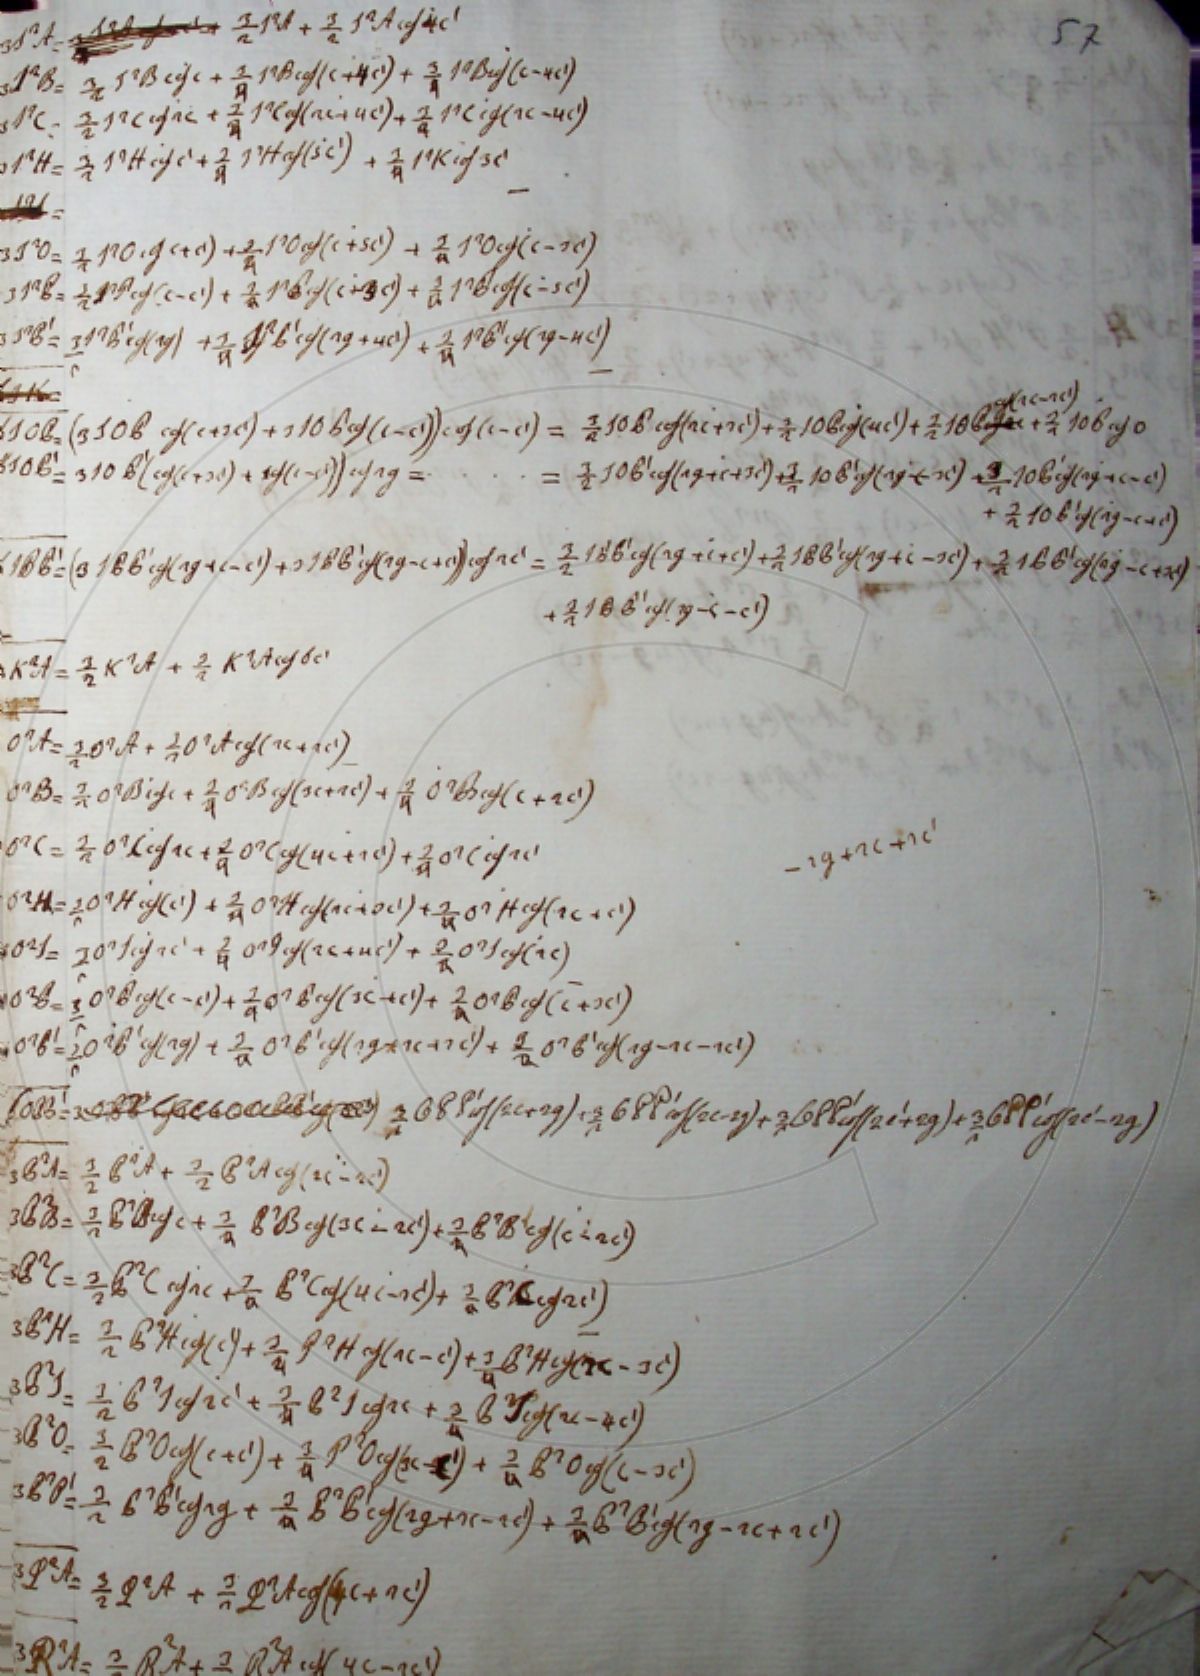 57
3I²A = 3/2 I²A + 3/2 I²A cos 4c'
3I²B = 3/2 I²B cos c + 3/4 I²B cos(c+4c') + 3/4 I²B cos(c-4c')
3I²C = 3/2 I²C cos 2c + 3/4 I²C cos(2c+4c') + 3/4 I²C cos(2c-4c')
3I²H = 3/2 I²H cos c' + 3/4 I²H cos(5c') + 3/4 I²H cos 3c'
3I²O = 3/2 I²O cos(c+c') + 3/4 I²O cos(c+5c') + 3/4 I²O cos(c-3c')
3I²P = 3/2 I²P cos(c-c') + 3/4 I²P cos(c+3c') + 3/4 I²P cos(c-5c')
3I²P' = 3/2 I²P' cos(2g) + 3/4 I²P' cos(2g+4c') + 3/4 I²P' cos(2g-4c')
cos(2c-2c')
6IOP = (3IOP cos(c+3c') + 3IOP cos(c-c')) cos(c-c') = 3/2 IOP cos(2c+2c') + 3/2 IOP cos(4c') + 3/2 IOP + 3/2 IOP cos 0
6IOP' = 3IOP'(cos(c+3c') + cos(c-c')) cos 2g = . . . . = 3/2 IOP' cos(2g+c+3c') + 3/2 IOP' cos(2g-c-3c') + 3/2 IOP' cos(2g+c-c')
+ 3/2 IOP' cos(2g-c+c')
6IPP' = (3IPP' cos(2g+c-c') + 3IPP' cos(2g-c+c')) cos 2c' = 3/2 IPP' cos(2g+c+c') + 3/2 IPP' cos(2g+c-3c') + 3/2 IPP' cos(2g-c+3c')
+ 3/2 IPP' cos(2g-c-c')
3K²A = 3/2 K²A + 3/2 K²A cos 6c'
O²A = 3/2 O²A + 3/2 O²A cos(2c+2c')
O²B = 3/2 O²B cos c + 3/4 O²B cos(3c+2c') + 3/4 O²B cos(c+2c')
O²C = 3/2 O²C cos 2c + 3/4 O²C cos(4c+2c') + 3/4 O²C cos 2c'
-2g+2c+2c'
O²H = 3/2 O²H cos(c') + 3/4 O²H cos(2c+3c') + 3/4 O²H cos(2c+c')
O²I = 3/2 O²I cos 2c' + 3/4 O²I cos(2c+4c') + 3/4 O²I cos(2c)
O²P = 3/2 O²P cos(c-c') + 3/4 O²P cos(3c+c') + 3/4 O²P cos(c+3c')
O²P' = 3/2 O²P' cos(2g) + 3/4 O²P' cos(2g+2c+2c') + 3/4 O²P' cos(2g-2c-2c')
6OPP' = 3/2 OPP' cos(2c+2g) + 3/2 OPP' cos(2c-2g) + 3/2 OPP' cos(2c'+2g) + 3/2 OPP' cos(2c'-2g)
3P²A = 3/2 P²A + 3/2 P²A cos(2c-2c')
3P²B = 3/2 P²B cos c + 3/4 P²B cos(3c-2c') + 3/4 P²B cos(c-2c')
3P²C = 3/2 P²C cos 2c + 3/4 P²C cos(4c-2c') + 3/4 P²C cos 2c')
3P²H = 3/2 P²H cos(c') + 3/4 P²H cos(2c-c') + 3/4 P²H cos(2c-3c')
3P²I = 3/2 P²I cos 2c' + 3/4 P²I cos 2c + 3/4 P²I cos(2c-4c')
3P²O = 3/2 P²O cos(c+c') + 3/4 P²O cos(3c-c') + 3/4 P²O cos(c-3c')
3P²P' = 3/2 P²P' cos 2g + 3/4 P²P' cos(2g+2c-2c') + 3/4 P²P' cos(2g-2c+2c')
3Q²A = 3/2 Q²A + 3/2 Q²A cos(4c+2c')
3R²A = 3/2 R²A + 3/2 R²A cos(4c-2c')